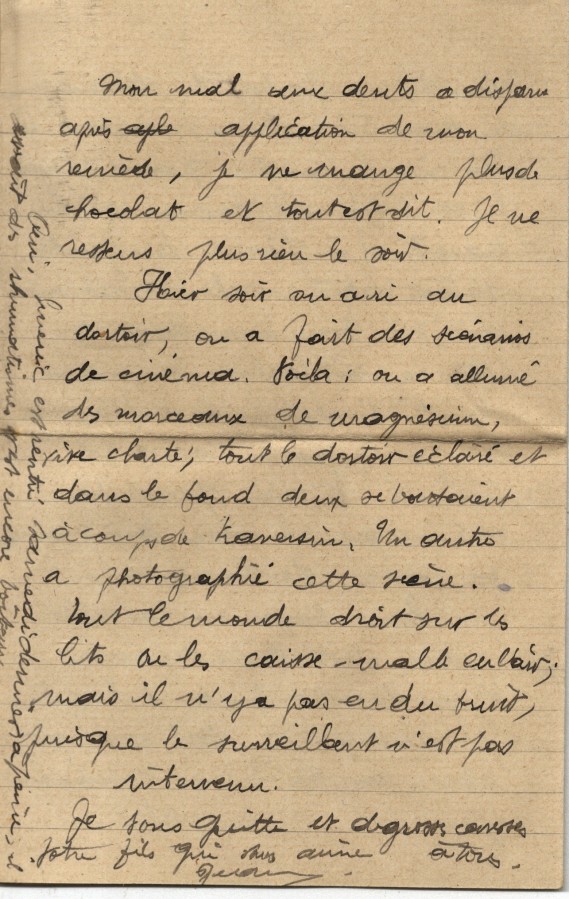 Mon mal aux dents a disparu
après application de mon
remède, je ne mange plus de
chocolat et tout est dit. Je ne
ressens plus rien le soir.
Hier soir on a ri au
dortoir, on a fait des scénarios
de cinéma. Voilà : on a allumé
des morceaux de magnésium,
tout le dortoir éclairé et
dans le fond deux se battaient
à coups de traversin. Un autre
a photographié cette scène.
Tout le monde droit sur les
lits ou les caisse-malle en l'air,
mais il n'y a pas eu du bruit,
puisque le surveillant n'est pas
intervenu.
Je vous quitte et de grosses caresses
à tous.
Votre fils qui vous aime
est rentré samedi dernier à peine, il
avait des rhumatismes et est encore